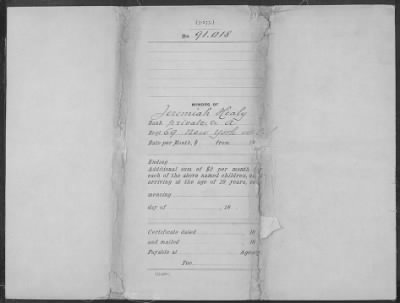 (3-273.)
No. 91.018
MINORS OF
Jeremiah Healy
Rank private, Co A
Regt 69 New York
Rate per Month, $ from 18
Ending
Additional sum of $2 per month for
each of the above named children,
arriving at the age of 16 years,
mencing
day of , 18
Certificate dated 18
and mailed 18
Payable at Agency
Fee